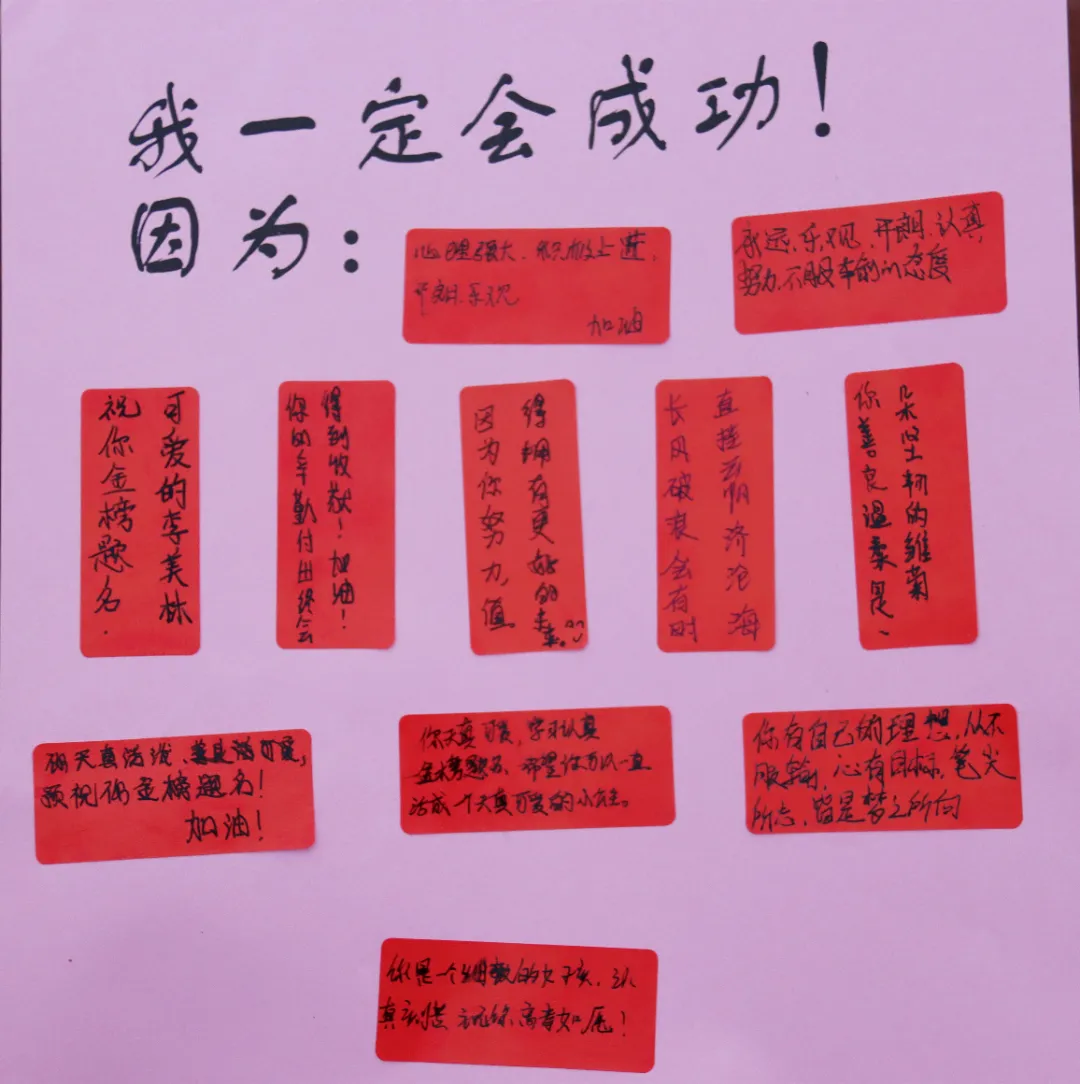 我一定会成功！
因为：
心理强大、积极上进、
开朗、乐观
加油
永远、乐观、开朗、认真
努力、不服输的态度
可爱的李美林
祝你金榜题名.
你的辛勤付出终会
得到收获！加油！
因为你努力，值
得拥有更好的未来。
长风破浪会有时
直挂云帆济沧海
你善良温柔是、
朵坚韧的雏菊
你天真活泼、善良活可爱，
预祝你金榜题名！
加油！
你天真可爱，学习认真
金榜题名，希望你可以一直
活成一个天真可爱的小女生。
你有自己的理想，从不
服输，心有目标，笔尖
所志，皆是梦之所向
你是一个细致的女孩，认
真刻苦 祝你高考如愿！